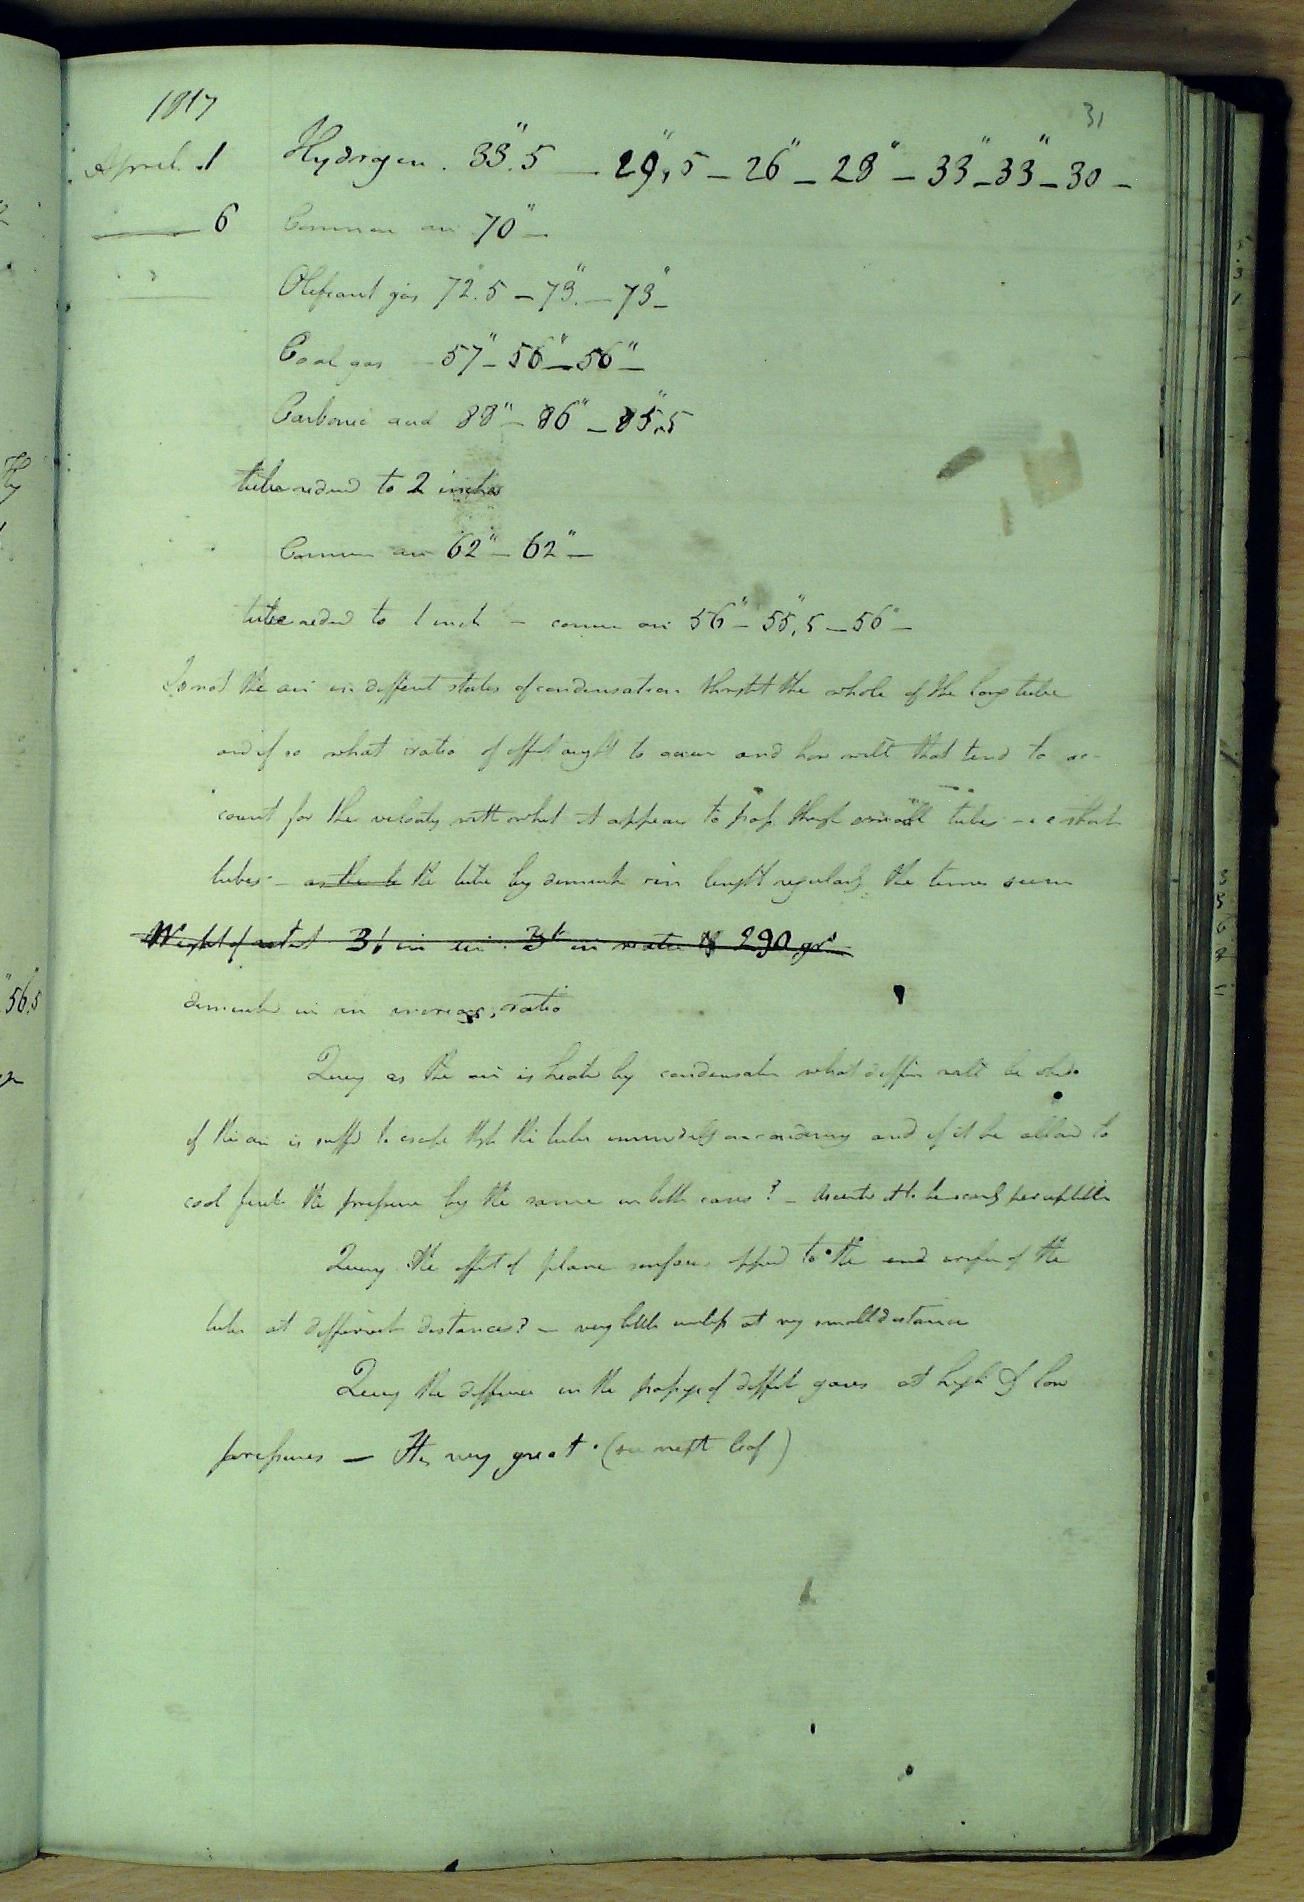 1817
31
April 1 Hydrogen. 33".5 — 29",5 — 26" — 28" — 33" — 33" — 30 —
—— 6 Common air 70" —
" Olefiant gas 72".5 — 73". — 73" —
Coal gas — 57" — 56" — 56" —
Carbonic acid 88" — 86" — 85",5
tube reducd to 2 inches
Common air 62" — 62" —
tube reducd to 1 inch — common air 56" — 55",5 — 56" —
Is not the air in different states of condensation throught the whole of the long tube
and if so what ratio of effect ought to occur and how will that tend to ac-
count for the velocity with what it appears to pass through small tubes — i e short
tubes — as the t the tube leng diminish in length regularly the times seem
Weight of 31 in air. 3 in water 290 grs
diminish in an increasg ratio
Query as the air is heatd by condensation what differ will be
if the air is sufferd to escape thgh the tubes immediatly on condensing and if it be allowd to
cool first the pressure by the same in both cases? — scarcely perceptible
Query the effect of plane surfaces opposed to the end orifice of the
tubes at different distances? — very little unless at very small distances
Query the difference in the passage of differt gases at high & low
pressures — It is very great. (see next leaf)
56",5